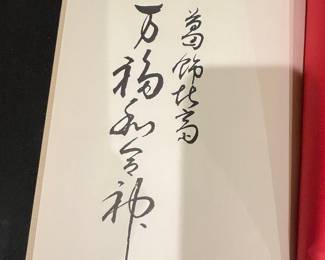 葛飾北斎
万福和合神